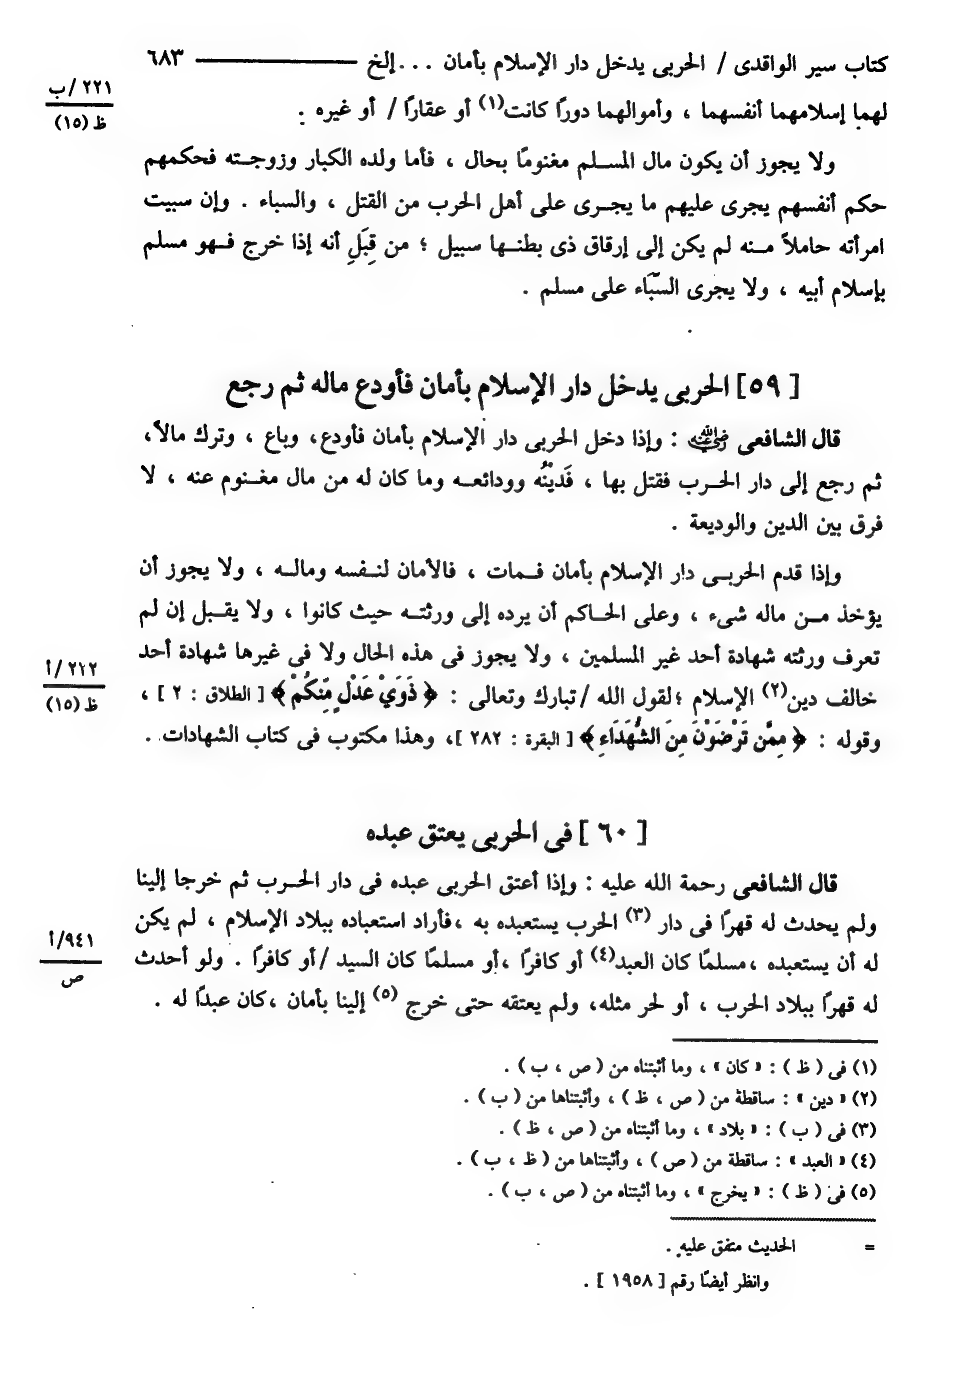 كتاب سير الواقدى / الحربى يدخل دار الإسلام بأمان . . . إلخ ٦٨٣
لهما إسلامهما أنفسهما ، وأموالهما دورًا كانت(١) أو عقارًا / أو غيره .
٢٢١/ب
ظ (١٥)
ولا يجوز أن يكون مال المسلم مغنومًا بحال ، فأما ولده الكبار وزوجته فحكمهم
حكم أنفسهم يجرى عليهم ما يجرى على أهل الحرب من القتل ، والسباء . وإن سبيت
امرأته حاملاً منه لم يكن إلى إرقاق ذى بطنها سبيل ؛ من قِبَلِ أنه إذا خرج فهو مسلم
بإسلام أبيه ، ولا يجرى السِّبَاء على مسلم .
[ ٥٩] الحربى يدخل دار الإسلام بأمان فأودع ماله ثم رجع
قال الشافعى رضي الله عنه : وإذا دخل الحربى دار الإسلام بأمان فأودع، وباع ، وترك مالاً،
ثم رجع إلى دار الحرب فقتل بها ، فَدَيْنُه وودائعه وما كان له من مال مغنوم عنه ، لا
فرق بين الدين والوديعة .
وإذا قدم الحربى دار الإسلام بأمان فمات ، فالأمان لنفسه وماله ، ولا يجوز أن
يؤخذ من ماله شىء ، وعلى الحاكم أن يرده إلى ورثته حيث كانوا ، ولا يقبل إن لم
تعرف ورثته شهادة أحد غير المسلمين ، ولا يجوز فى هذه الحال ولا فى غيرها شهادة أحد
خالف دين(٢) الإسلام ؛لقول الله /تبارك وتعالى : ﴿ ذَوَيْ عَدْلٍ مِّنكُمْ ﴾ [ الطلاق : ٢ ] ،
٢١٢/أ
ظ (١٥)
وقوله : ﴿ مِمَّن تَرْضَوْنَ مِنَ الشُّهَدَاءِ ﴾ [ البقرة : ٢٨٢ ]، وهذا مكتوب فى كتاب الشهادات .
[ ٦٠ ] فى الحربى يعتق عبده
قال الشافعى رحمة الله عليه : وإذا أعتق الحربى عبده فى دار الحرب ثم خرجا إلينا
ولم يحدث له قهرًا فى دار (٣) الحرب يستعبده به ،فأراد استعباده ببلاد الإسلام ، لم يكن
له أن يستعبده ،مسلمًا كان العبد(٤) أو كافرًا ،أو مسلمًا كان السيد /أو كافرًا . ولو أحدث
٩٤١/أ
ص
له قهرًا ببلاد الحرب ، أو لحر مثله، ولم يعتقه حتى خرج (٥) إلينا بأمان ،كان عبدًا له .
(١) فى ( ظ ) : « كان » ، وما أثبتناه من ( ص ، ب ) .
(٢) « دين » : ساقطة من ( ص ، ظ ) ، وأثبتناها من ( ب ) .
(٣) فى ( ب ) : « بلاد » ، وما أثبتناه من ( ص ، ظ ) .
(٤) « العبد » : ساقطة من ( ص ) ، وأثبتناها من ( ظ ، ب ) .
(٥) فى ( ظ ) : « يخرج » ، وما أثبتناه من ( ص ، ب ) .
= الحديث متفق عليه .
وانظر أيضًا رقم [ ١٩٥٨ ] .